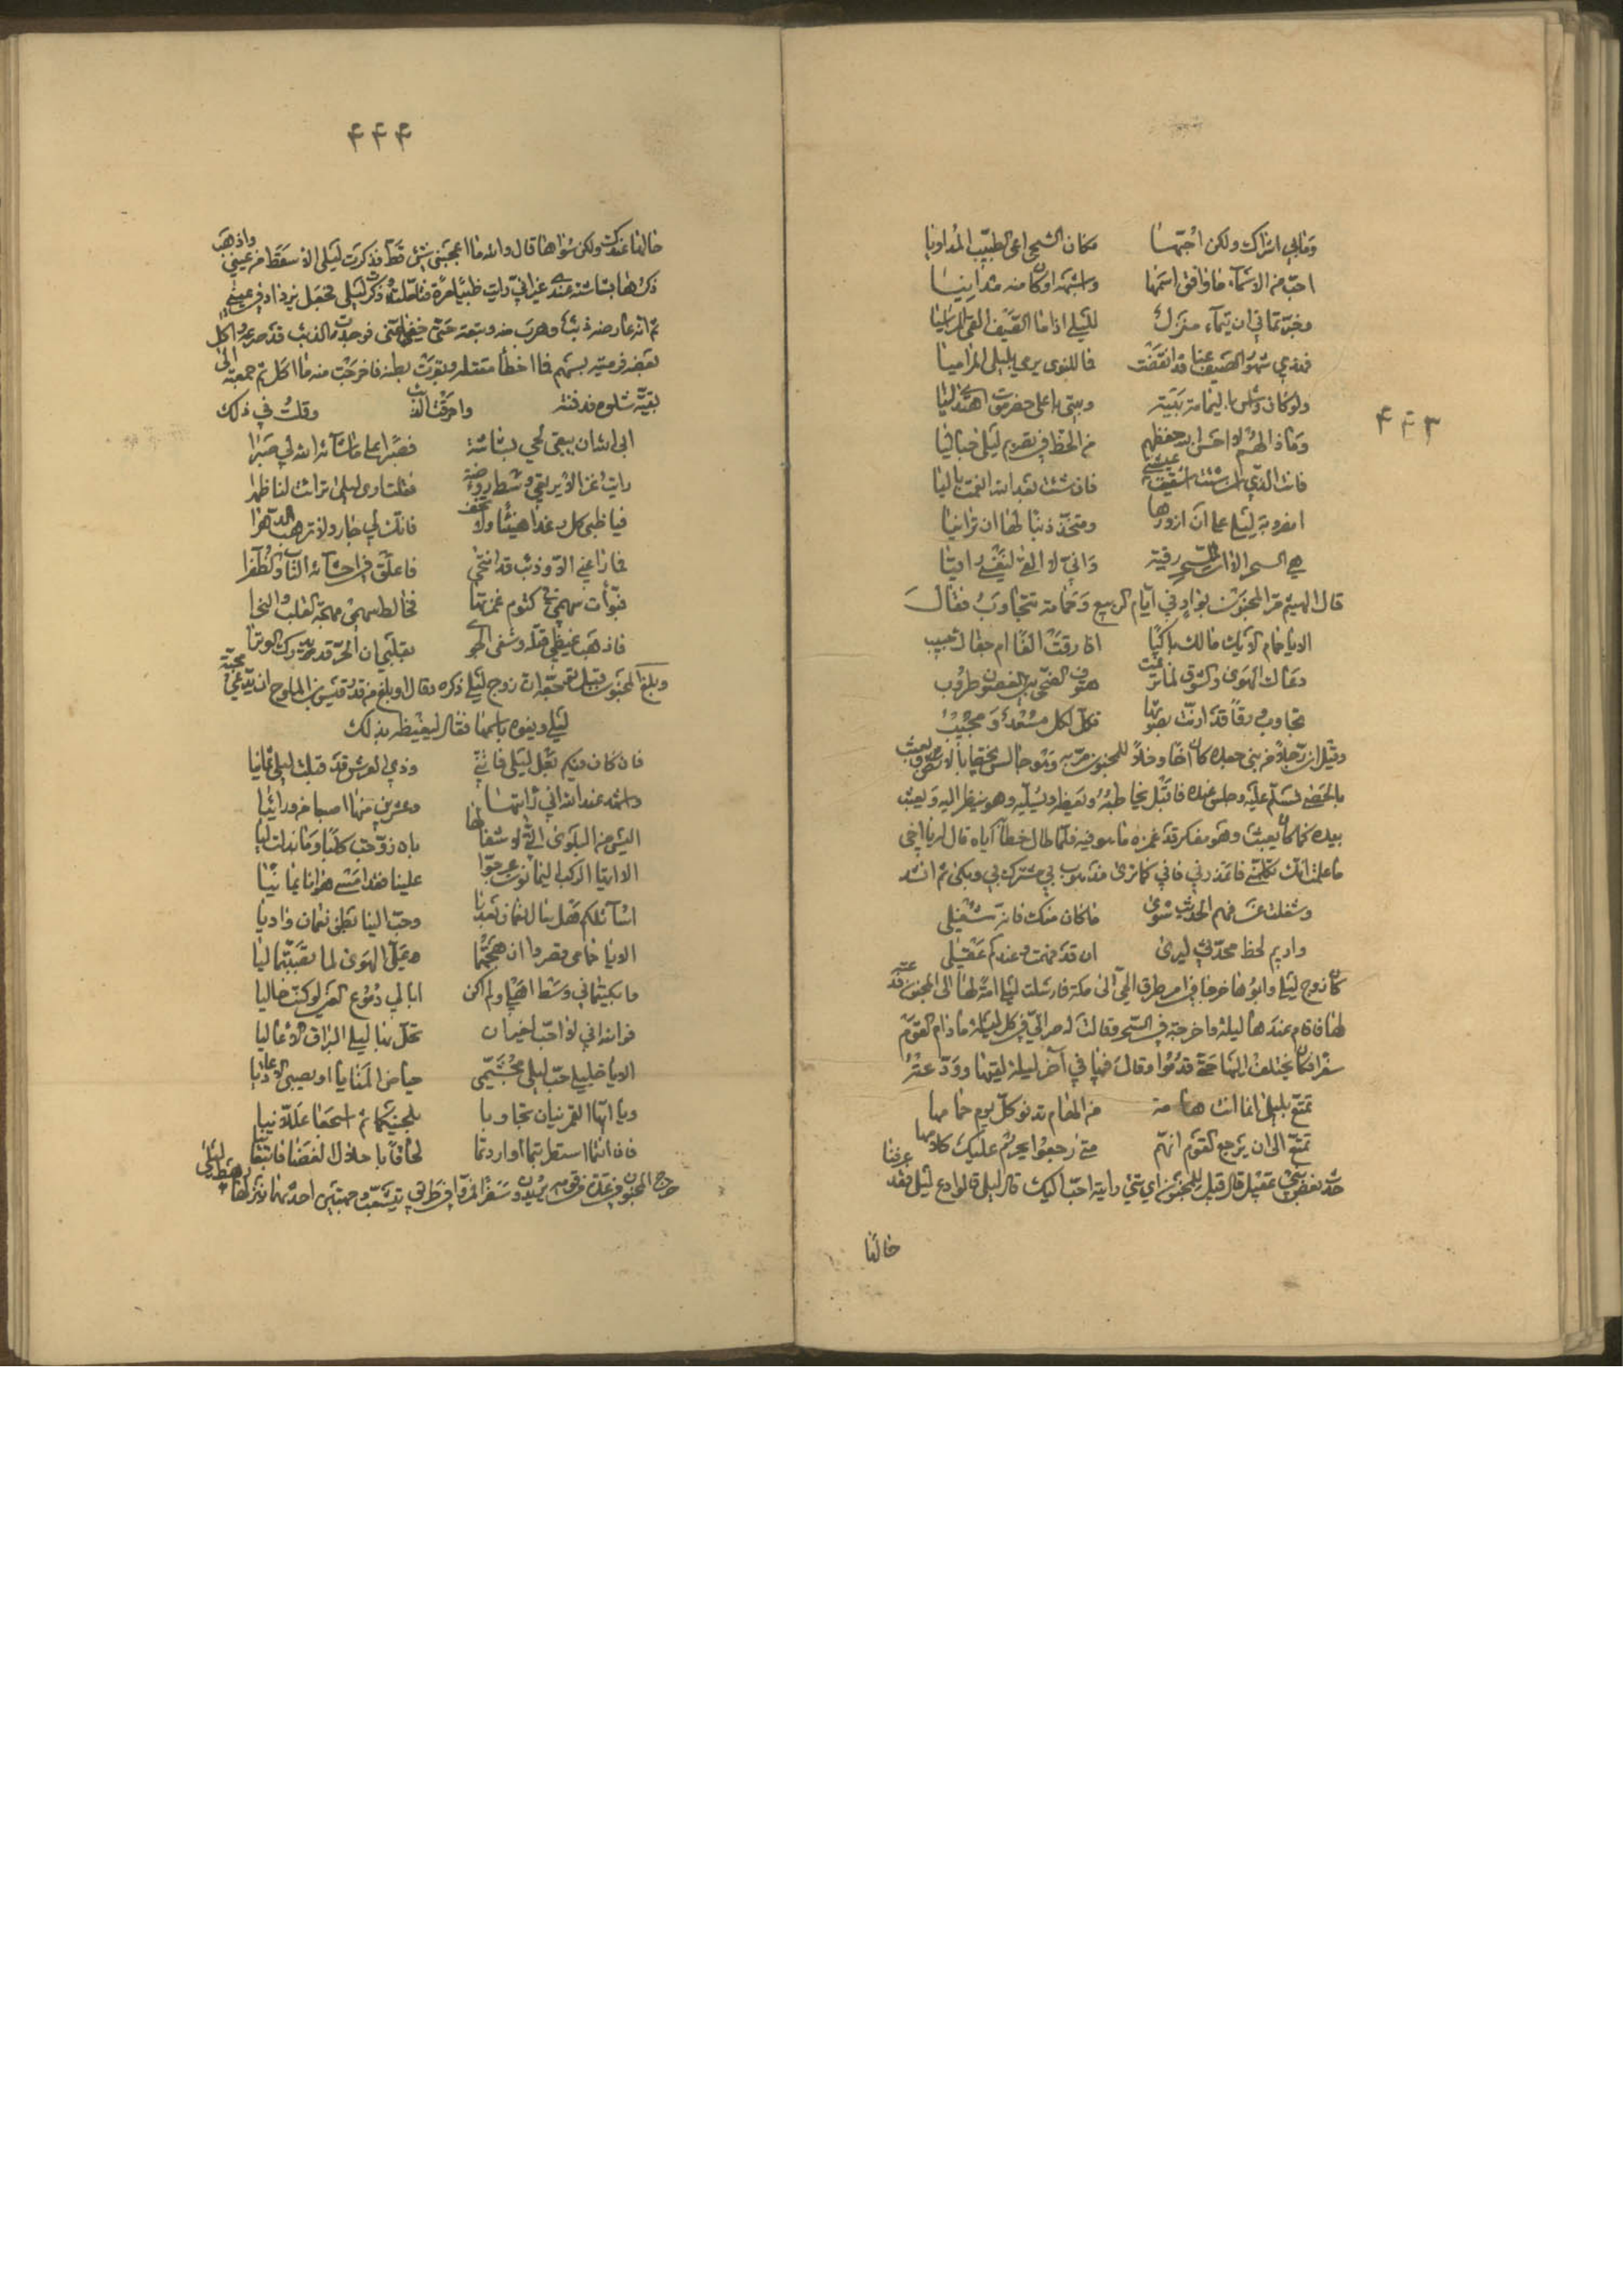 ۴۴۳
وما بي اشراك ولكن حبها مكان الشجى اعى الطبيب المداويا
احب من الاسماء ما وافق اسمها واشبهه او كان منه مدانيا
وخبرتماني ان تيماء منزل لليلى اذا ما الصيف القى المراسيا
فهذي شهور الصيف عنا قد انقضت فما للنوى يرمي بليلى المراميا
ولو كان واش باليمامة بيته وبيتي باعلى حضرموت اهتدى ليا
وماذا لهم لا احسن الله حفظهم من الحظ في تصريم ليلى حباليا
فانت الذي ان شئت اشقيت عيشتي فان شئت بعد الله انعمت باليا
امضروبة ليلى على ان ازورها ومتخذ ذنبا لها ان ترانيا
هي السحر الا ان للسحر رقية واني لا الفي لنفسي راقيا
قال الهيثم مر المجنون بواد في ايام الربيع وحمامه تتجاوب فقال
الا يا حمام الايك مالك باكيا افارقت الفا ام جفاك حبيب
دعاك الهوى والشوق لما ترنمت هتوف الضحى بين الغصون طروب
تجاوب ورقا قد ارنت بصوتها فكل لكل مسعد ومجيب
وقيل ان رجلا من بني جعده كان اخا وخلا للمجنون مر به وهو جالس يخط بالارض ويعبث
بالحصى فسلم عليه وجلس عنده فاقبل يخاطبه ويعظه ويسليه وهو ينظر اليه ويعبث
بيده كما كان يعبث وهو مفكر قد غمره ما هو فيه فلما طال خطابه اياه قال له يا اخي
ما علمت انك تكلمني فاعذرني فاني كما ترى مذهوب بي مشترك بي وبكى ثم انشد
وشغلت عن فهم الحديث سوى ما كان منك فانه شغلي
واديم لحظ محدثي ليرى ان قد فهمت وعندكم عقلي
كان زوج ليلى وابوها خرجا في امر طرق الحي الى مكة فارسلت ليلى امة لها الى المجنون
لها فاقام عندها ليلة واخرجته في السحر وقالت له صر الي في كل ليلة ما دام القوم
سفرا فكان يختلف اليها حتى قدموا وقال فيها في آخر ليلة لقيها وودعته
تمتع بليلى انما انت هامة من الهام تدنو كل يوم حمامها
تمتع الى ان يرجع القوم انهم متى رجعوا يحرم عليك كلامها
حدث بعض بني عقيل قال قيل للمجنون اي شئ رايته احب اليك قال ليلى قالوا دع ليلى فقد عرفنا
خالنا
۴۴۴
ما لها عندك ولكن سواها قال والله ما اعجبني شئ قط فذكرت ليلى الا سقط من عيني واذهب
ذكرها بشاشته عندي غير اني رايت ظبيا مرة فتاملته وذكرت ليلى فجعل يزداد في عيني
ثم انه عارضه ذئب وهرب منه وتبعته حتى خفيا عني فوجدت الذئب قد صرعه واكل
بعضه فرميته بسهم فما اخطأ مقتله وبقرت بطنه فاخرجت منه ما اكل ثم جمعته الى
بقية شلوه فدفنته واحرقت الذئب وقلت في ذلك
ابى الله ان يبقى لحي بشاشة فصبرا على ما شآئه الله لي صبرا
رايت غزالا يرتعي وسط روضة فقلت ارى ليلى تراءت لنا ظهرا
فيا ظبي كل رغدا هنيئا ولا تخف فانك لي جار ولا ترهب الدهرا
فما راعني الا وذئب قد انتحى فاعلق في احشائه الناب والظفرا
فبوأت سهمي في كتوم غمزتها فخالط سهمي مهجة القلب والنحرا
فاذهب غيظي قتله وشفى الجوى بقلبي ان الحر قد يدرك الوترا
وبلغ المجنون قبل توحشه ان زوج ليلى ذكره وقال او بلغ من قدر قيس بن الملوح ان يدعي محبة
ليلى وينوه باسمها فقال ليغيظه بذلك
فان كان فيكم بعل ليلى فانني وذي العرش قد قبلت ليلى ثمانيا
واشهد عند الله اني رايتها وعشرين منها اصبعا من ورائيا
اليس من البلوى التي لا شفا لها بان زوجت كلبا وما بذلت ليا
الا ايها الركب اليمانون عرجوا علينا فقد امسى هوانا يمانيا
اسآئلكم هل سال نعمان بعدنا وحب الينا بطن نعمان واديا
الا يا حمامي قصر ودان هجتما علي الهوى لما تغنيتما ليا
فابكيتماني وسط اهلي ولم اكن ابالي دموع العين لو كنت خاليا
فوالله اني لا احب لغير ان تحل بها ليلى البراق الاعاليا
الا يا خليلي حب ليلى مجشمي حياض المنايا او مصيبي الاعاديا
ويا ايها القمريتان تجاوبا بلحنيكما ثم اسجعا عللانيا
فان انتما استطربتما او اردتما لحاقا باطلال الغضا فاتبعانيا
خرج المجنون في عدة من قومه يريدون سفرا فمروا في طريق يتشعب وجهتين احدهما ينزلها رهط ليلى